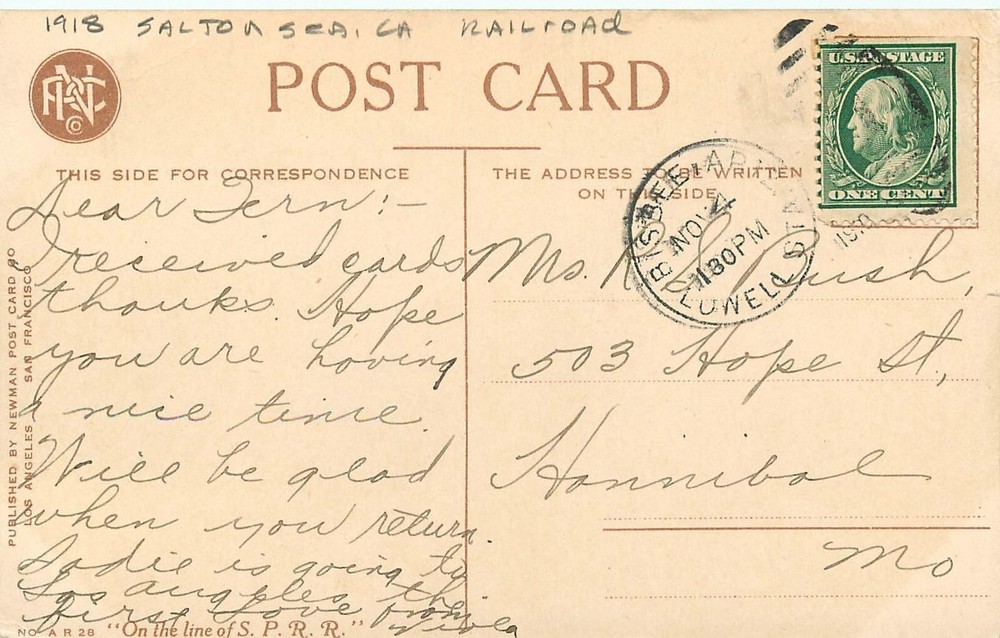 1918 SALTON SEA, CA RAILROAD
POST CARD
THIS SIDE FOR CORRESPONDENCE
THE ADDRESS TO BE WRITTEN
ON THIS SIDE
U.S. POSTAGE
ONE CENT
BISBEE, ARIZ.
NOV 21
1130PM
LOWELL STA
1910
Dear Fern:-
I received cards
thanks. Hope
you are having
a nice time.
Will be glad
when you return.
Sadie is going to
Los Angeles the
first Love from
Mrs. R. L. Rush,
503 Hope St,
Hannibal
Mo
PUBLISHED BY NEWMAN POST CARD CO
LOS ANGELES SAN FRANCISCO
NO A R 28 "On the line of S. P. R. R."